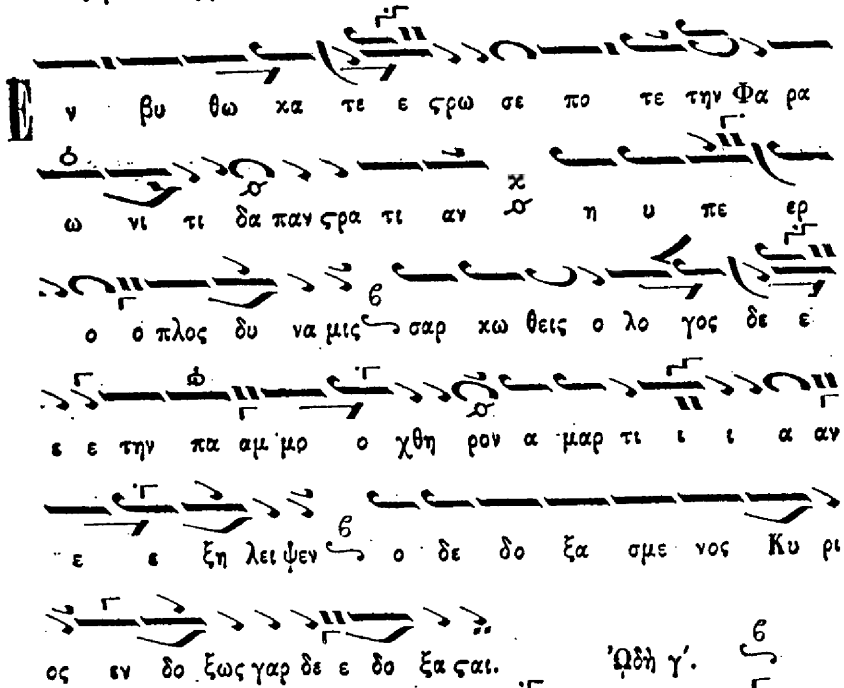 Εν βυ θω κα τε ε ςρω σε πο τε την Φα ρα
ω νι τι δα παν ςρα τι αν η υ πε ερ
ο ο πλος δυ να μις σαρ κω θεις ο λο γος δε ε
ε ε την πα αμ μο ο χθη ρον α μαρ τι ι ι α αν
ε ε ξη λει ψεν ο δε δο ξα σμε νος Κυ ρι
ος εν δο ξως γαρ δε ε δο ξα ςαι. Ὠδὴ γ΄.